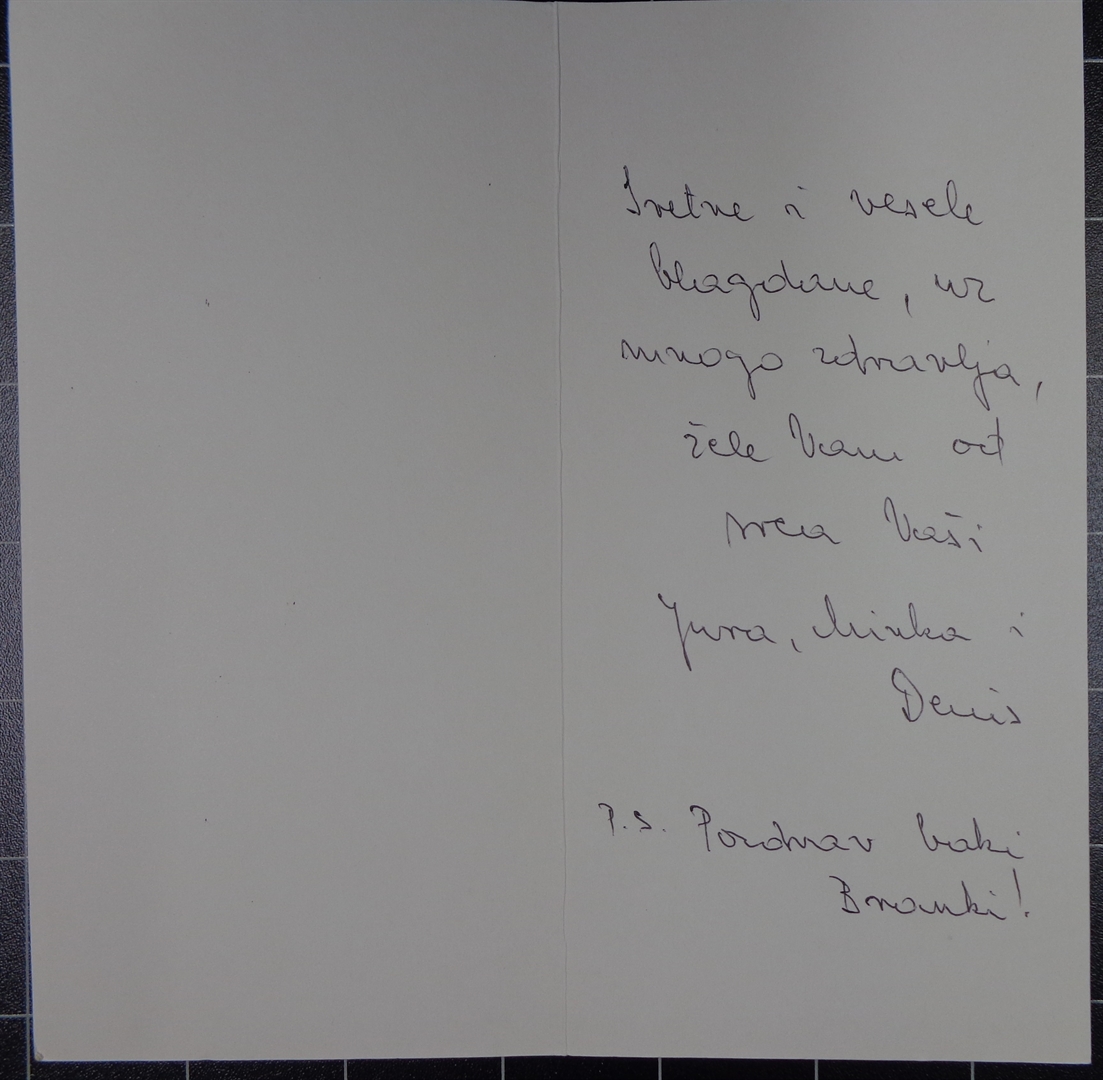 Sretne i vesele
blagdane, uz
mnogo zdravlja,
žele Vam od
srca Vaši
Jura, Minka i
Denis
P.S. Pozdrav baki
Branki!